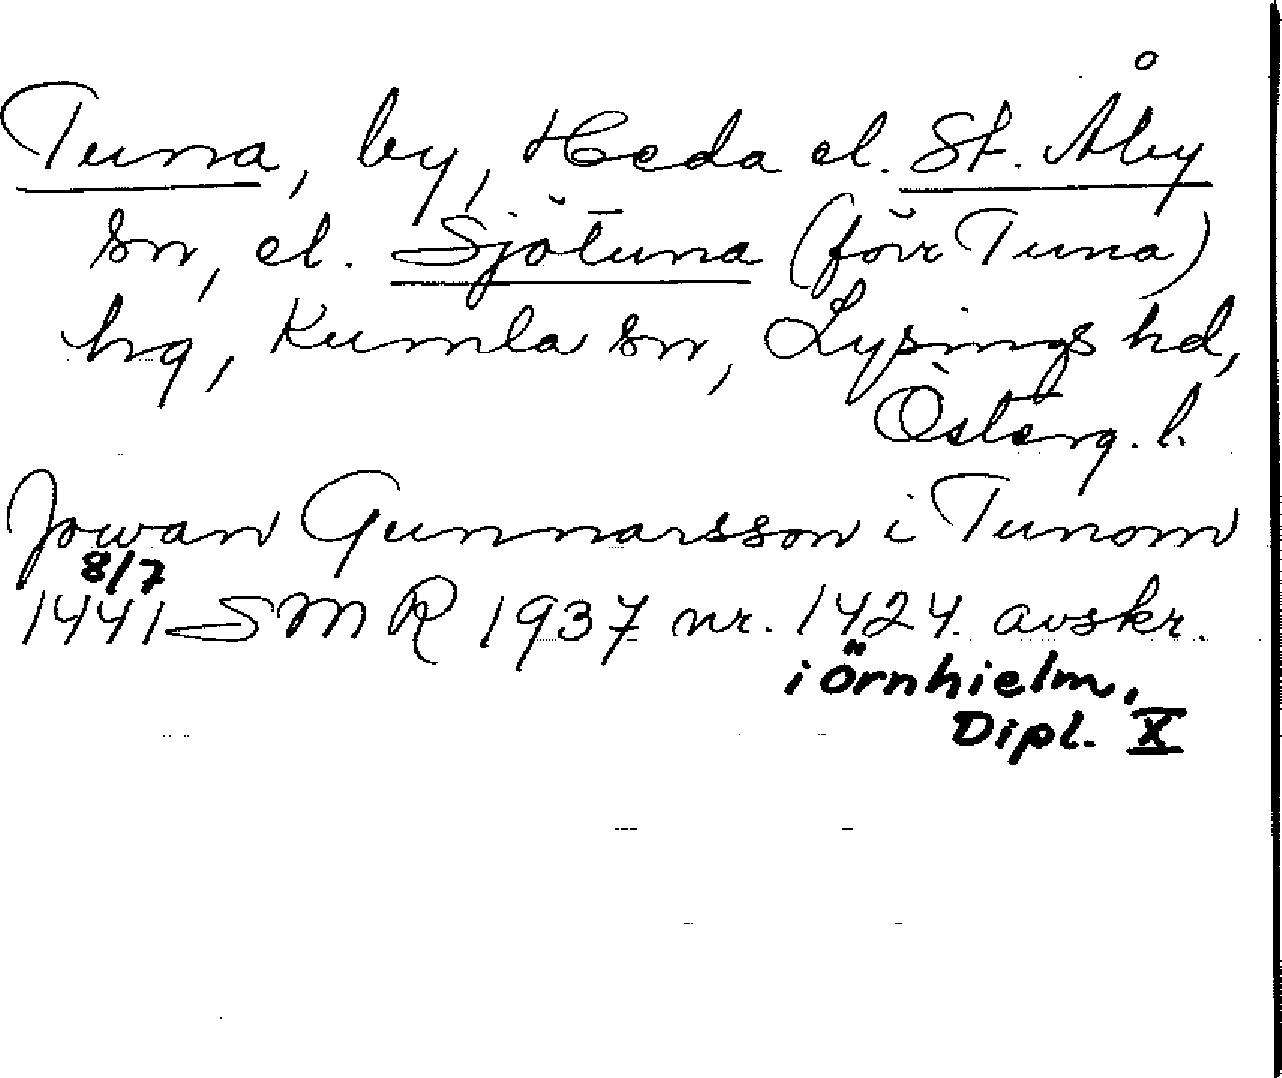 Tuna, by, Heda el. St. Åby
sn, el. Sjötuna (förr Tuna)
hg, Kumla sn, Lysings hd,
Österg. l.
Jowan Gunnarsson i Tunom
8/7
1441 SMR 1937 nr. 1424. avskr.
i Örnhielm,
Dipl. X